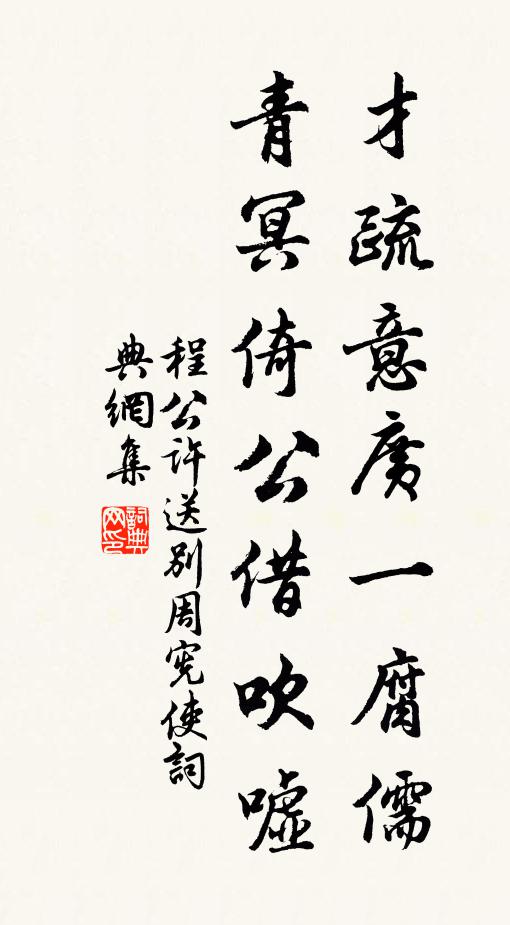 才疏意廣一腐儒
青冥倚公借吹噓
程公許送別周憲使詞
典網集
詞典網印